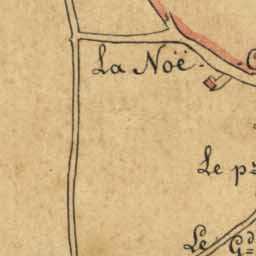 La Noë.
Le p.
Le G.d